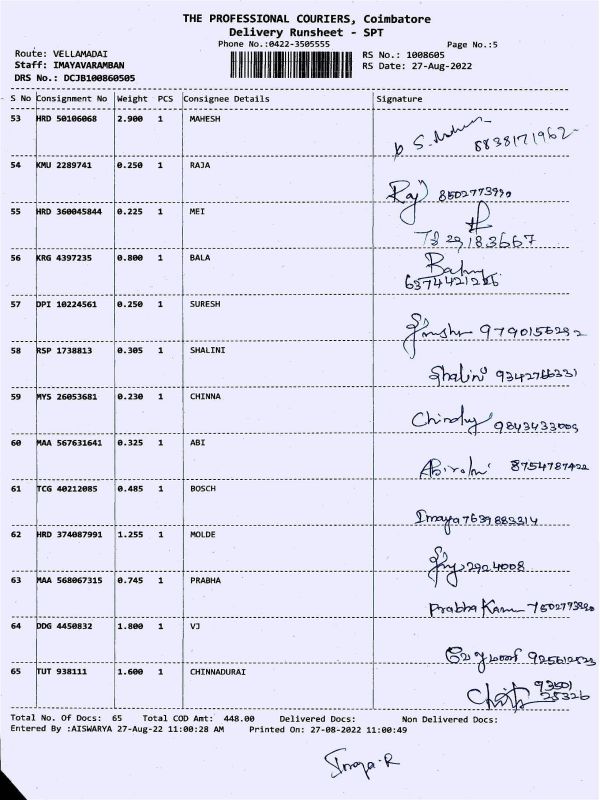 THE PROFESSIONAL COURIERS, Coimbatore
Delivery Runsheet - SPT
Phone No.:0422-3505555 Page No.:5
Route: VELLAMADAI RS No.: 1008605
Staff: IMAYAVARAMBAN RS Date: 27-Aug-2022
DRS No.: DCJB100860505
S No Consignment No Weight PCS Consignee Details Signature
53 HRD 50106068 2.900 1 MAHESH
8838171962
54 KMU 2289741 0.250 1 RAJA
Raj
55 HRD 360045844 0.225 1 MEI
56 KRG 4397235 0.800 1 BALA
57 DPI 10224561 0.250 1 SURESH
9790156292
58 RSP 1738813 0.305 1 SHALINI
Shalini 9342766331
59 MYS 26053681 0.230 1 CHINNA
60 MAA 567631641 0.325 1 ABI
8754787422
61 TCG 40212085 0.485 1 BOSCH
Imaya 7639883314
62 HRD 374087991 1.255 1 MOLDE
2924008
63 MAA 568067315 0.745 1 PRABHA
Prabha
64 DDG 4450832 1.800 1 VJ
65 TUT 938111 1.600 1 CHINNADURAI
25326
Total No. Of Docs: 65 Total COD Amt: 448.00 Delivered Docs: Non Delivered Docs:
Entered By :AISWARYA 27-Aug-22 11:00:28 AM Printed On: 27-08-2022 11:00:49
Imaya.R